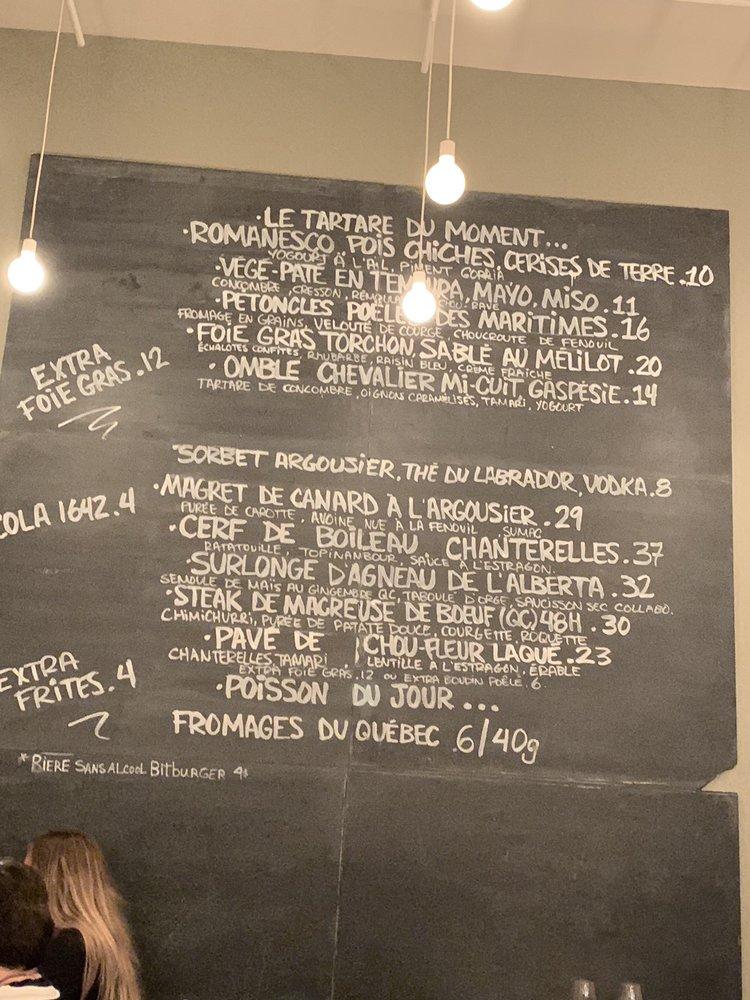 ·LE TARTARE DU MOMENT...
·ROMANESCO POIS CHICHES CERISES DE TERRE.10
YOGOURT À L'AIL, PIMENT GORRIA
·VÉGÉ-PATÉ EN TEMPURA MAYO, MISO.11
CONCOMBRE CRESSON,
·PETONCLES POÊLÉ DES MARITIMES.16
FROMAGE EN GRAINS, VELOUTÉ DE COURGE CHOUCROUTE DE FENOUIL
·FOIE GRAS TORCHON, SABLÉ AU MÉLILOT.20
ÉCHALOTES CONFITES, RHUBARBE, RAISIN BLEU, CRÈME FRAÎCHE
EXTRA
FOIE GRAS.12
·OMBLE CHEVALIER MI-CUIT GASPÉSIE.14
TARTARE DE CONCOMBRE, OIGNONS CARAMÉLISÉS, TAMARI, YOGOURT
*SORBET ARGOUSIER, THÉ DU LABRADOR, VODKA.8
COLA 1642.4
·MAGRET DE CANARD À L'ARGOUSIER.29
PURÉE DE CAROTTE, AVOINE NUE À LA FENOUIL, SUMAC
·CERF DE BOILEAU CHANTERELLES.37
RATATOUILLE, TOPINANBOUR, SAUCE À L'ESTRAGON.
·SURLONGE D'AGNEAU DE L'ALBERTA.32
SEMOULE DE MAÏS AU GINGEMBRE QC, TABOULÉ D'ORGE, SAUCISSON SEC COLLABO.
·STEAK DE MACREUSE DE BOEUF (QC) 48H.30
CHIMICHURRI, PURÉE DE PATATE DOUCE, COURGETTE, ROQUETTE
·PAVÉ DE CHOU-FLEUR LAQUÉ.23
CHANTERELLES, TAMARI, LENTILLE À L'ESTRAGON, ÉRABLE
EXTRA FOIE GRAS.12 OU EXTRA BOUDIN POÊLÉ.6.
EXTRA
FRITES.4
·POISSON DU JOUR...
FROMAGES DU QUÉBEC .6/40g
*BIÈRE SANS ALCOOL BITBURGER 4$